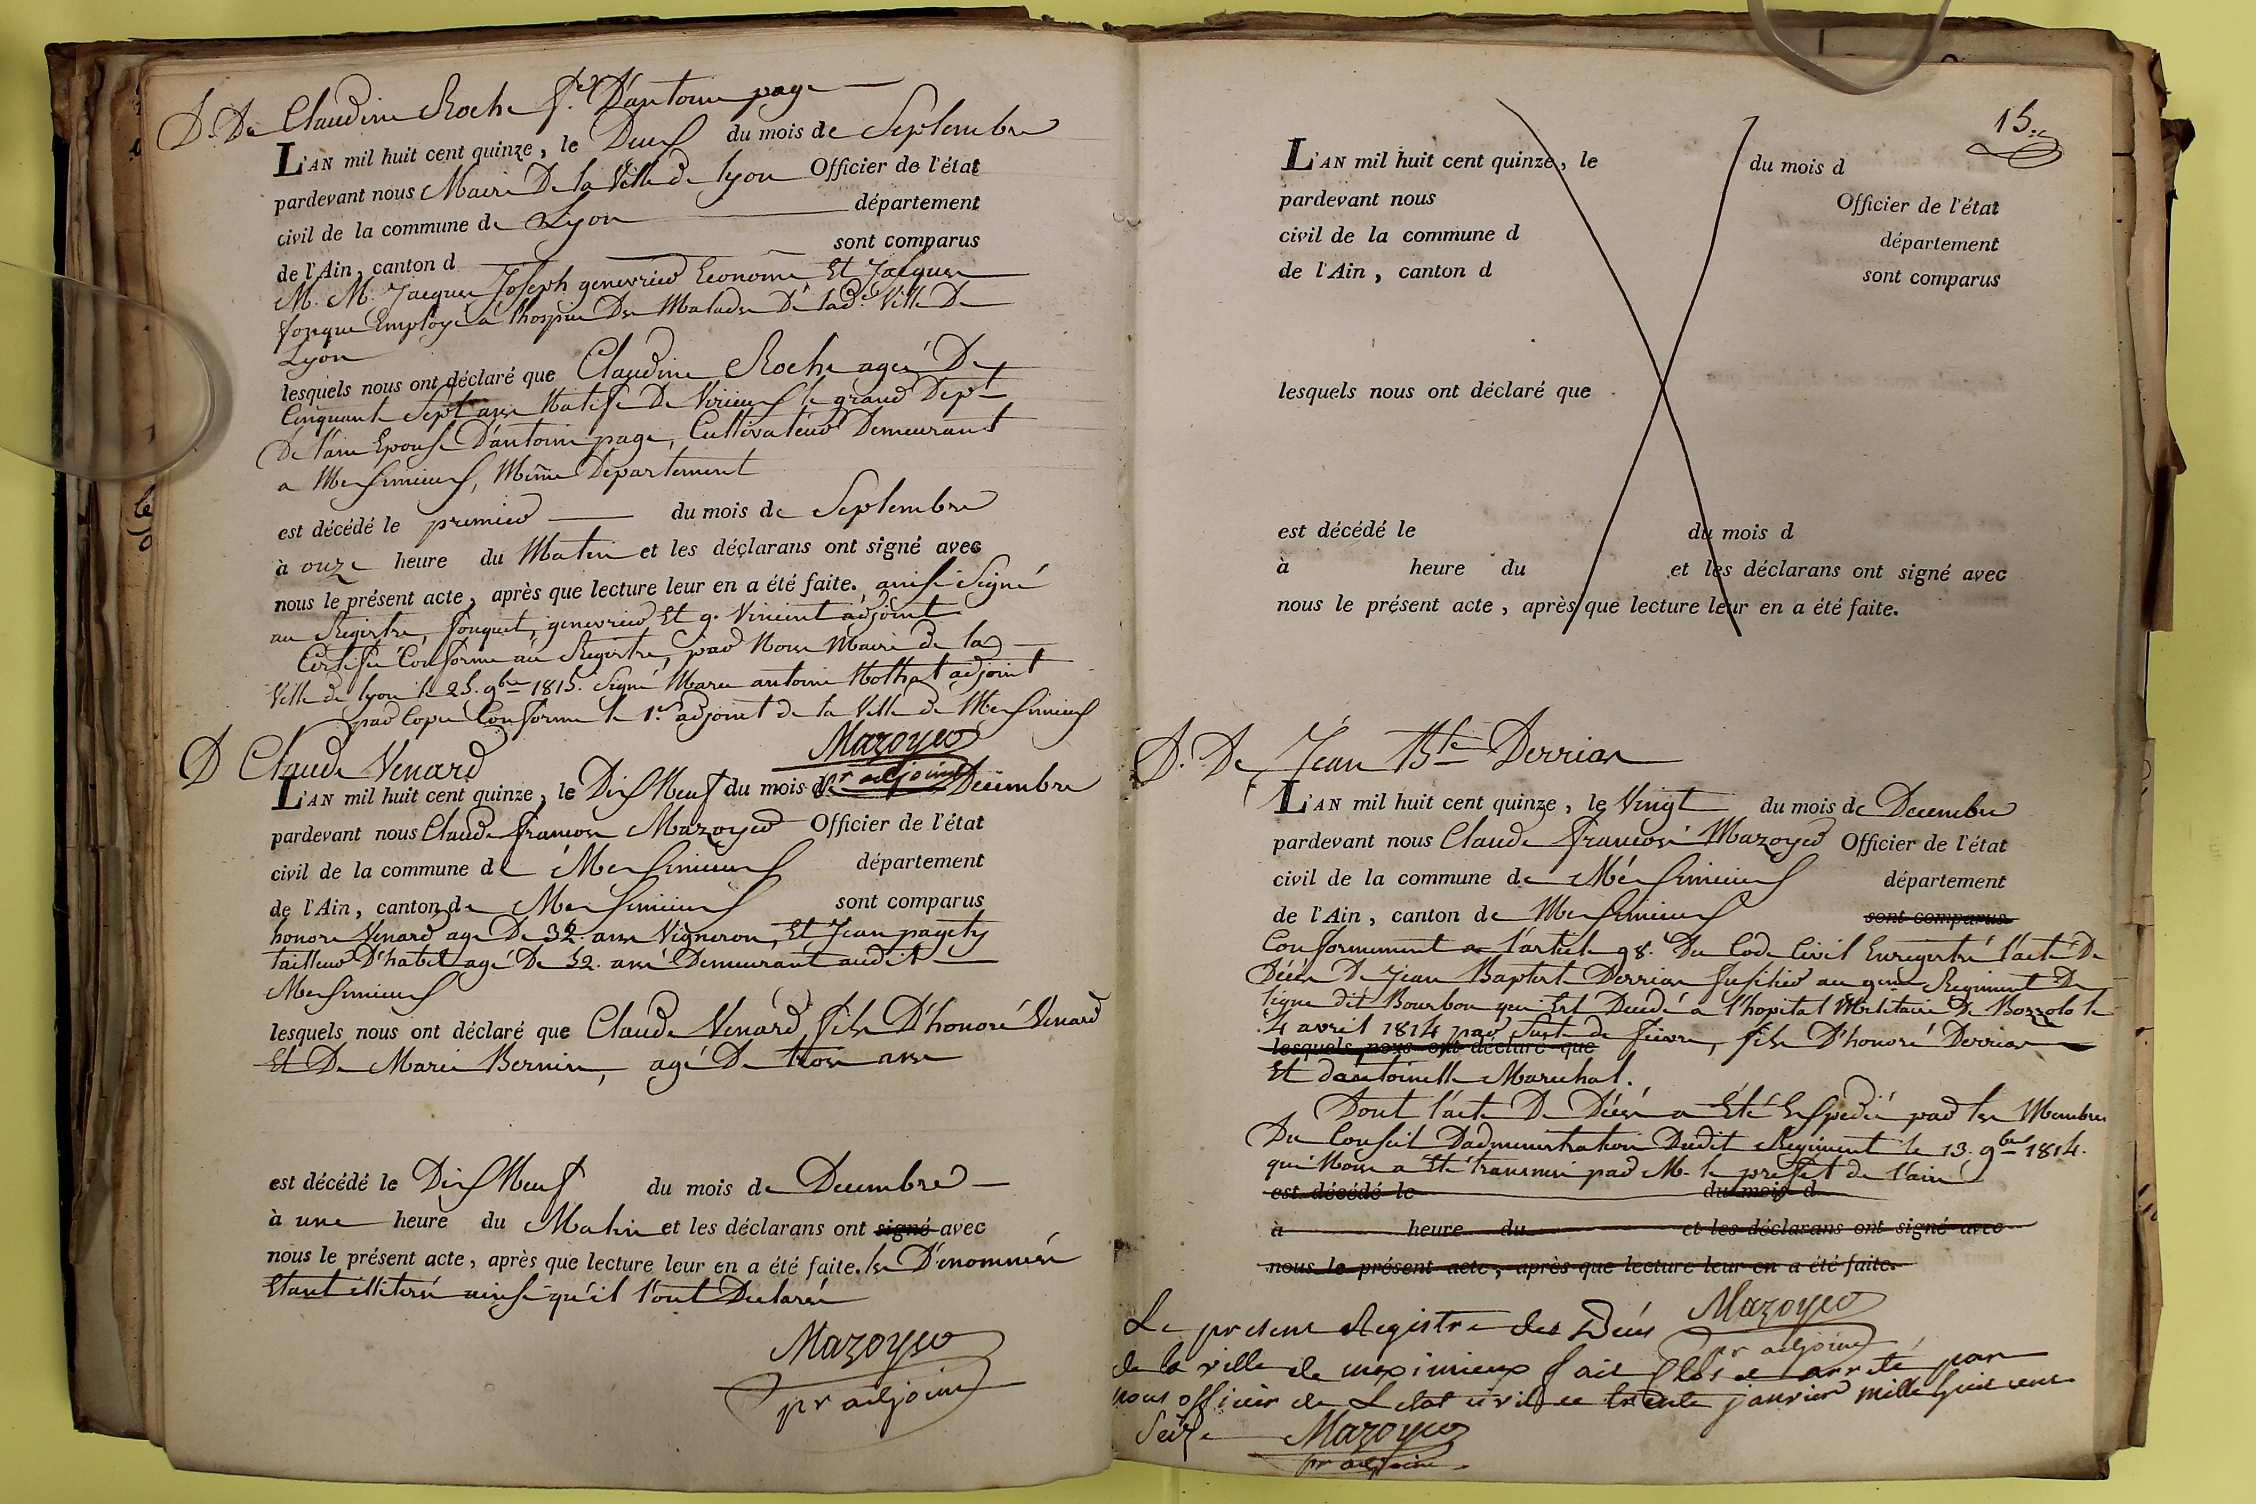 D. De Claudine Roche f.e D'antoine page
L'AN mil huit cent quinze, le Deux du mois de Septembre
pardevant nous Maire De la Ville de lyon Officier de l'état
civil de la commune de Lyon département
de l'Ain, canton d sont comparus
M. M. Jacques Joseph genevrier Econome, Et Jacques
fouque Employé a l'hospice Des Malades De lad.e Ville De
Lyon
lesquels nous ont déclaré que Claudine Roche agée De
Cinquante Sept ans Native De Virieux le grand Dep.t
De l'ain Epouse D'antoine page, Cultivateur Demeurant
a Meximieux, Même Departement
est décédé le premier du mois de Septembre
à onze heure du Matin et les déclarans ont signé avec
nous le présent acte, après que lecture leur en a été faite. ainsi Signé
au Registre, fouquet, genevrier Et g. Vincent adjoint
Certifié Conforme au Registre, par Nous Maire de la
Ville de lyon le 25. 9bre 1815. Signé Marc antoine Nothat adjoint
par Copie Conforme le 1.er adjoint de la Ville de Meximieux
Mazoyer
pr adjoint
D Claude Venard
L'AN mil huit cent quinze, le Dix Neuf du mois de Decembre
pardevant nous Claude francois Mazoyer Officier de l'état
civil de la commune de Meximieux département
de l'Ain, canton de Meximieux sont comparus
honoré Venard agé De 32. ans Vigneron, Et Jean pagety
tailleur D'habit agé De 52. ans Demeurant audit
Meximieux
lesquels nous ont déclaré que Claude Venard, fils D'honoré Venard
Et De Marie Bernin, agé De trois ans
est décédé le Dix Neuf du mois de Decembre
à une heure du Matin et les déclarans ont signé avec
nous le présent acte, après que lecture leur en a été faite. les Dénommés
Etant illiterés ainsi qu'il l'ont Declarés
Mazoyer
pr adjoint
15.e
L'AN mil huit cent quinze, le du mois d
pardevant nous Officier de l'état
civil de la commune d département
de l'Ain, canton d sont comparus
lesquels nous ont déclaré que
est décédé le du mois d
à heure du et les déclarans ont signé avec
nous le présent acte, après que lecture leur en a été faite.
D. De Jean Bte Derrias
L'AN mil huit cent quinze, le Vingt du mois de Decembre
pardevant nous Claude francois Mazoyer Officier de l'état
civil de la commune de Méximieux département
de l'Ain, canton de Meximieux sont comparus
Conformement a l'article 98. Du Code Civil Enregistré l'acte De
Décès De Jean Baptist Derrias fusilier au 9me Regiment De
ligne dit Bourbon qui Est Decedé a l'hopital Militaire De Bozzolo le
4 avril 1814 par Suite de fievre, fils D'honoré Derrias
lesquels nous ont déclaré que
Et d'antoinette Marechal.
Dont l'acte De Décès a Eté Expedié par les Membres
Du Conseil D'administration Dudit Regiment le 13. 9bre 1814.
qui Nous a Eté transmis par M. le prefet de l'ain
est décédé le du mois d
à heure du et les déclarans ont signé avec
nous le présent acte, après que lecture leur en a été faite.
Mazoyer
pr adjoint
Le present Registre des Décés
de la ville de meximieux fait Clos et arreté par
nous officier de Letat civil ce trente janvier mille huit cent
Seize
Mazoyer
pr adjoint